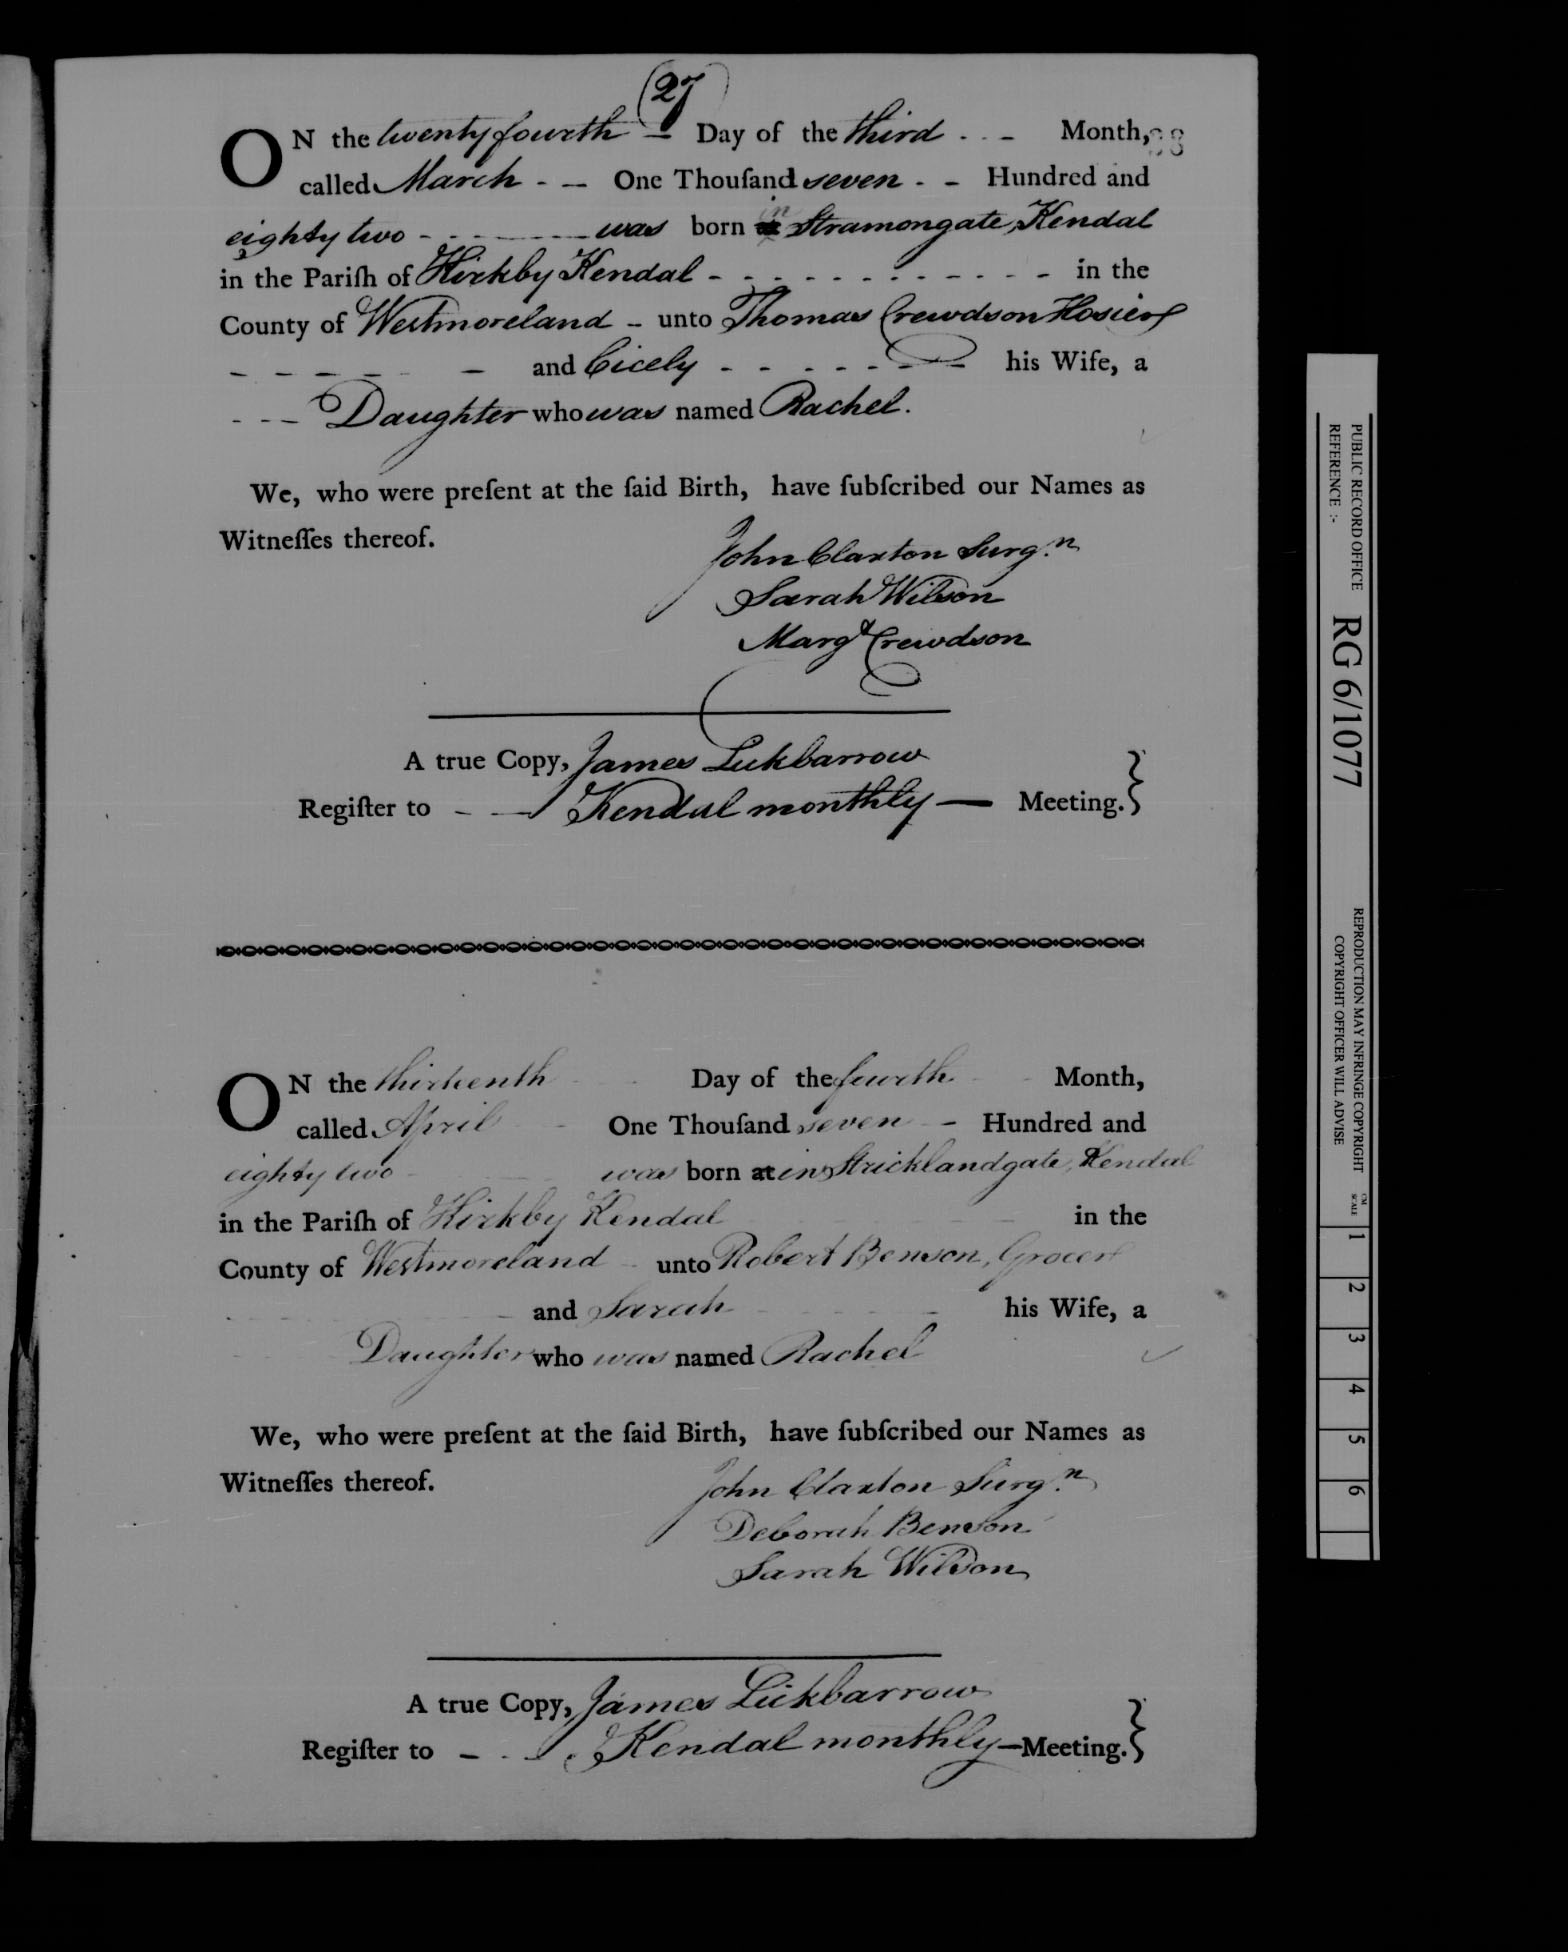 (27)
ON the twenty fourth — Day of the third . . - Month,
38
called March - — One Thouſand seven - - Hundred and
eighty two - - — was born in Stramongate, Kendal
in the Pariſh of Kirkby Kendal - - - - - - - - - - - - - in the
County of Westmoreland - unto Thomas Crewdson Hosier
— — — — — — and Cicely - - - - - - — his Wife, a
- - - Daughter who was named Rachel.
We, who were preſent at the ſaid Birth, have ſubſcribed our Names as
Witneſſes thereof.
John Claxton Surg.n
Sarah Wilson
Margt Crewdson
A true Copy, James Lickbarrow
Regiſter to - — Kendal monthly — Meeting.}
ON the thirteenth - - Day of the fourth - - Month,
called April - One Thouſand seven - - Hundred and
eighty two - - — was born at in Stricklandgate, Kendal
in the Pariſh of Kirkby Kendal - - - — in the
County of Westmoreland - unto Robert Benson, Grocer
- - - — and Sarah - - - — his Wife, a
Daughter who was named Rachel
We, who were preſent at the ſaid Birth, have ſubſcribed our Names as
Witneſſes thereof.
John Claxton Surg.n
Deborah Benson
Sarah Wilson
A true Copy, James Lickbarrow
Regiſter to - - - Kendal monthly — Meeting.}
PUBLIC RECORD OFFICE
REFERENCE :-
RG 6/1077
REPRODUCTION MAY INFRINGE COPYRIGHT
COPYRIGHT OFFICER WILL ADVISE
CM
SCALE
1
2
3
4
5
6